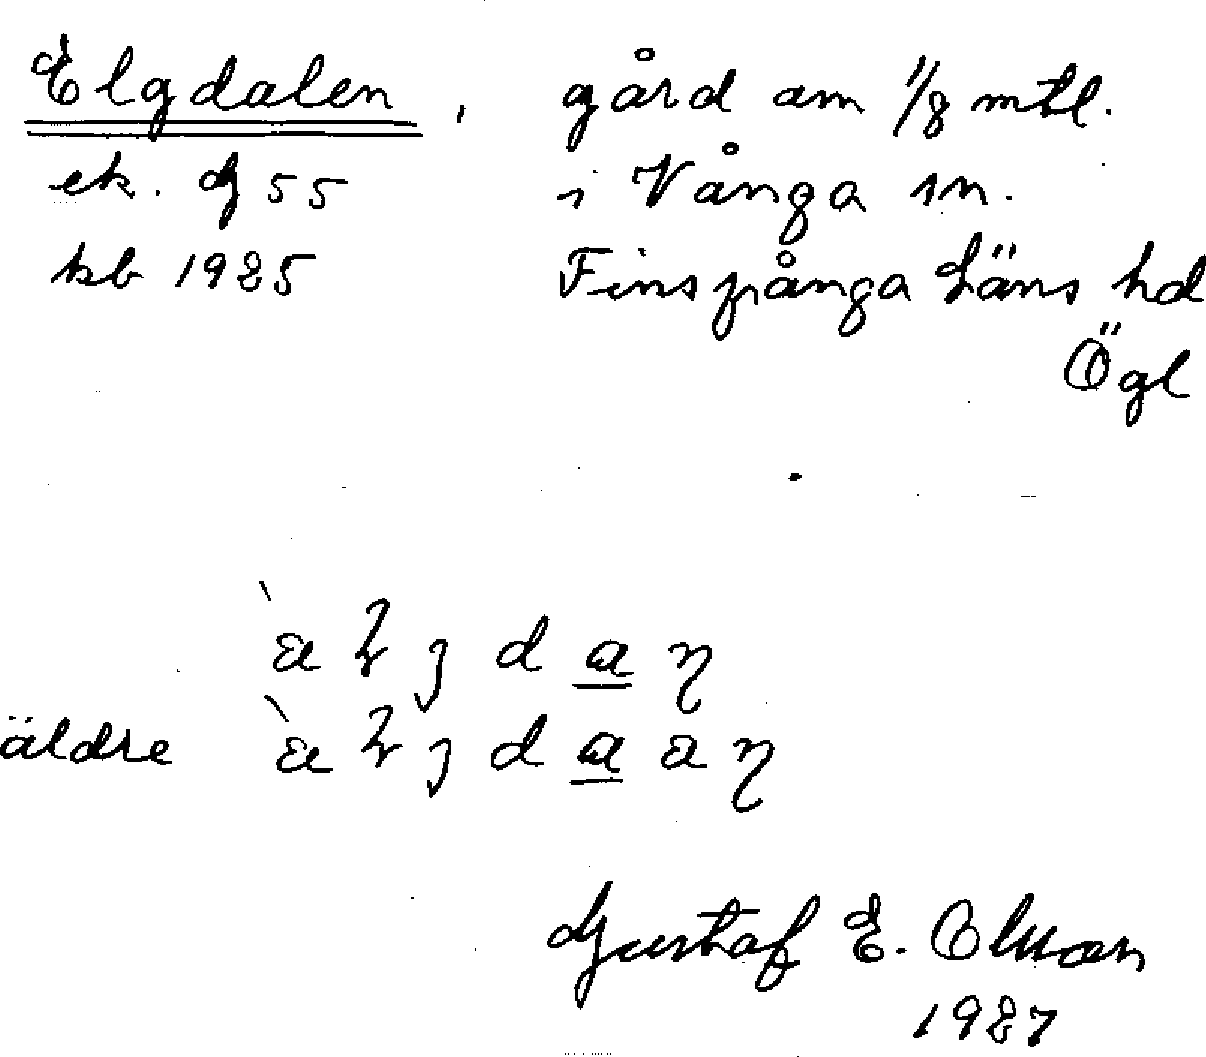 Elgdalen, gård om 1/8 mtl.
ek. G 55 i Vånga sn.
kb 1925 Finspånga läns hd
Ögl
äldre
Gustaf E. Olsson
1927